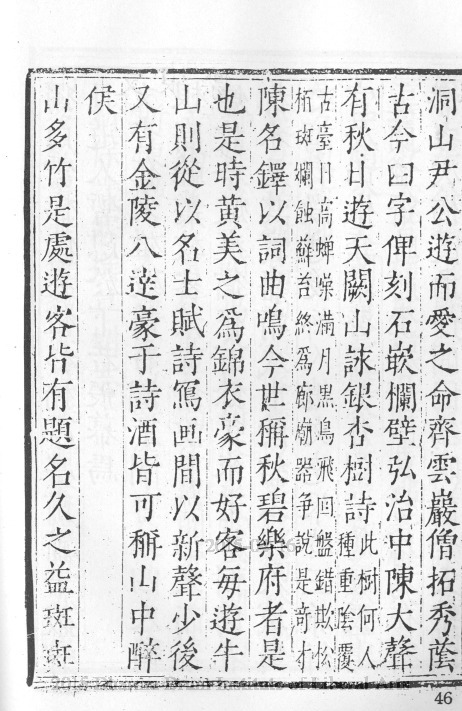 洞山尹公遊而愛之命齊雲巖僧拓秀蔭
古今四字俾刻石嵌欄壁弘治中陳大聲
有秋日遊天闕山詠銀杏樹詩此樹何人
種重陰覆
古臺日高蟬噪滿月黒鳥飛回盤錯欺松
栢斑斕蝕蘚苔終為廊廟器爭說是奇才
陳名鐸以詞曲鳴今世稱秋碧樂府者是
也是時黃美之爲錦衣豪而好客每遊牛
山則從以名士賦詩寫画間以新聲少後
又有金陵八達豪于詩酒皆可稱山中醉
侯
山多竹是處遊客皆有題名久之益斑斑
46